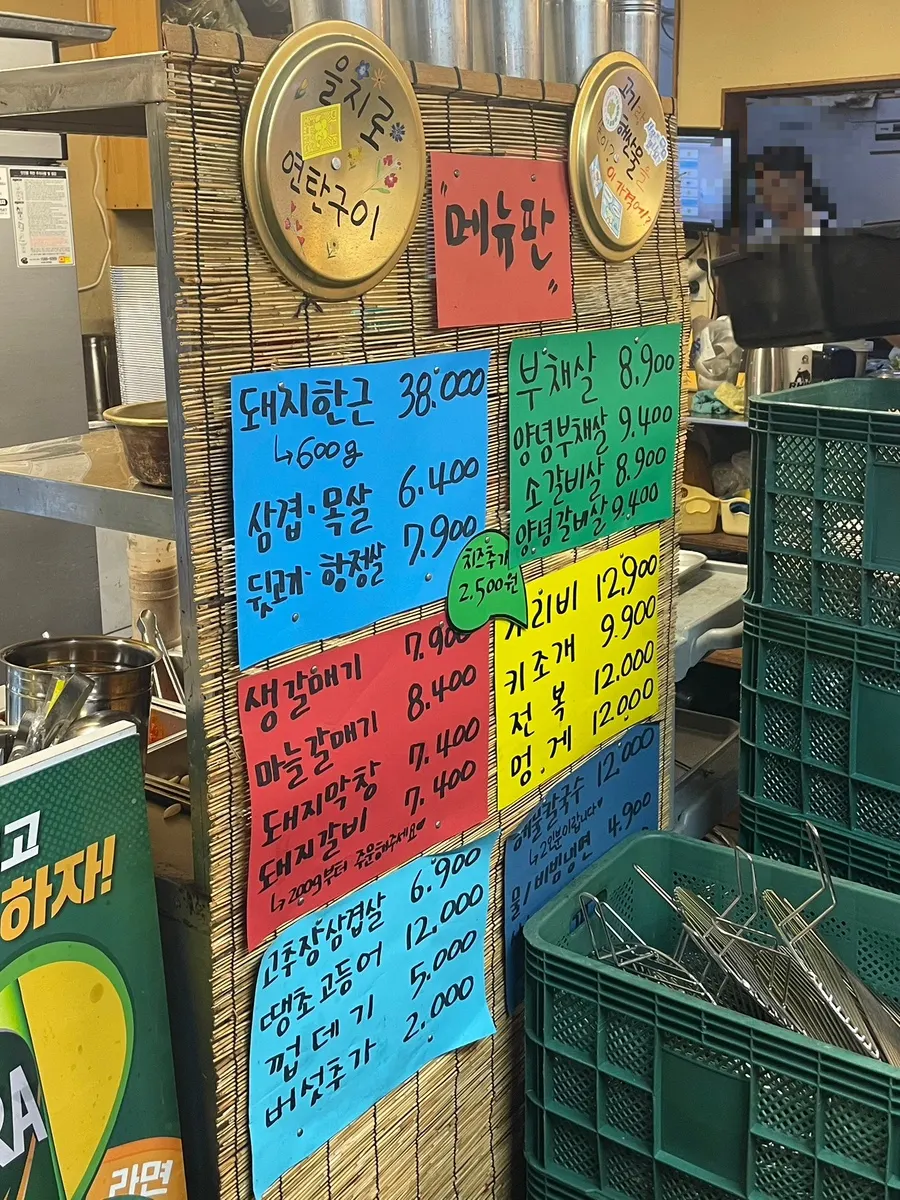 을지로
연탄구이
"메뉴판"
고기랑
해산물을
이 가격에?
돼지한근 38.000
↳600g
삼겹·목살 6.400
뒷고기·항정살 7.900
부채살 8.900
양념부채살 9.400
소갈비살 8.900
양념갈비살 9.400
치즈추가
2.500원
생갈매기 7.900
마늘갈매기 8.400
돼지막창 7.400
돼지갈비 7.400
↳200g부터 주문해주세요♡
가리비 12.900
키조개 9.900
전복 12.000
멍.게 12.000
해물칼국수 12.000
↳2인분이랍니다♡
물/비빔냉면 4.900
고추장삼겹살 6.900
땡초고등어 12.000
껍데기 5.000
버섯추가 2.000
고
하자!
RA
라면